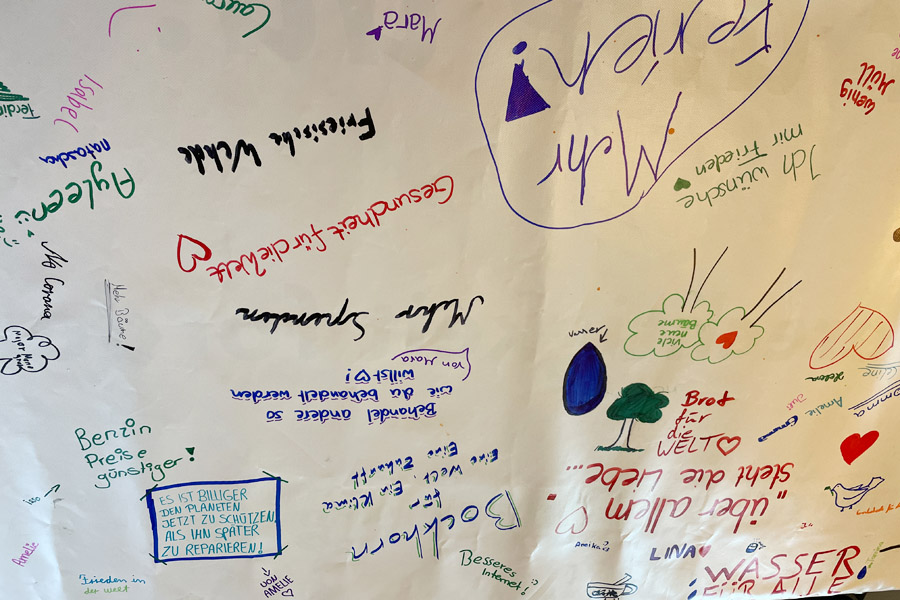 Mara
Ferien!
Mehr
Isabel
natascha
Ayleen
Friesische Wehde
wenig
Müll
Ich wünsche
mir Frieden
Gesundheit für die Welt
Mehr Bäume!
Mehr Spenden
viele
neue
Bäume
Behandel andere so
wie du behandelt werden
willst!
(von Mara
Brot
für
die
WELT
Amelie
Emma
Benzin
Preise
günstiger!
ES IST BILLIGER
DEN PLANETEN
JETZT ZU SCHÜTZEN,
ALS IHN SPÄTER
ZU REPARIEREN!
VON
AMELIE
Bockhorn
für Ein Klima
Eine Welt
Eine Zukunft
"über allem
steht die Liebe...
Besseres
Internet!
LINA
WASSER
FÜR ALLE
Amelie
Frieden in
der welt